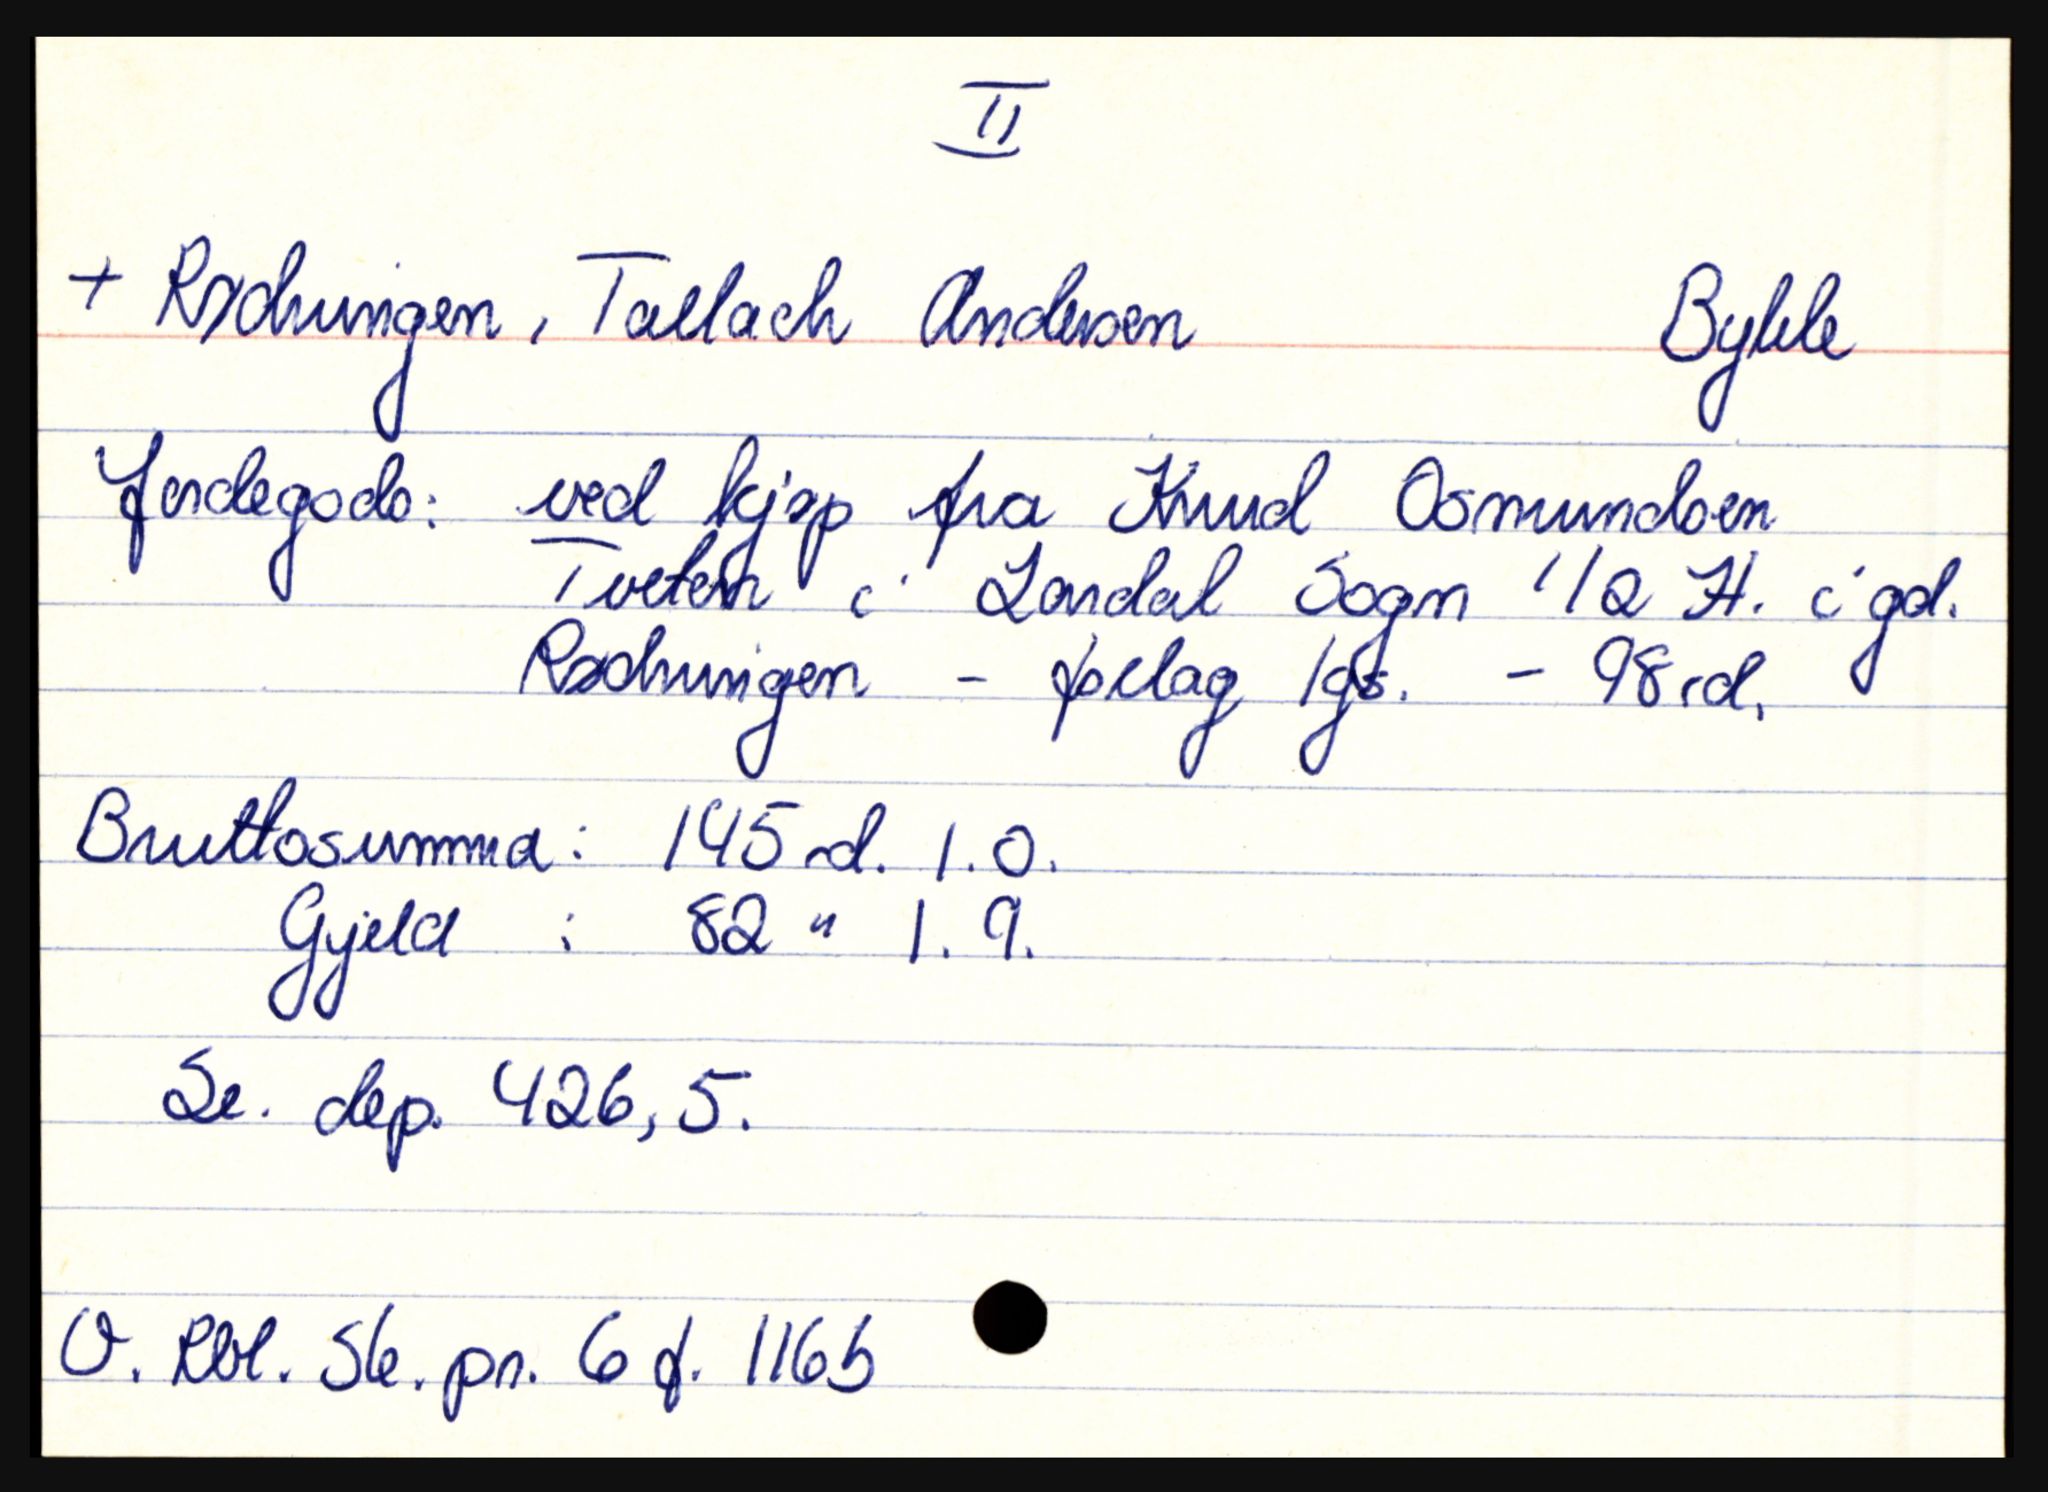 II
+ Rødningen, Tallach Andersen Bykle
Jordegods: ved kjøp fra Knud Osmundsen
Tveten i Lardal Sogn 1/2 H. i gd.
Rødningen - pelag 1gs. - 98 rd.
Bruttosumma: 145 rd. 1. 0.
Gjeld : 82 " 1. 9.
Se. dep. 426, 5.
O. Rbl. Sk. pr. 6 f. 116b